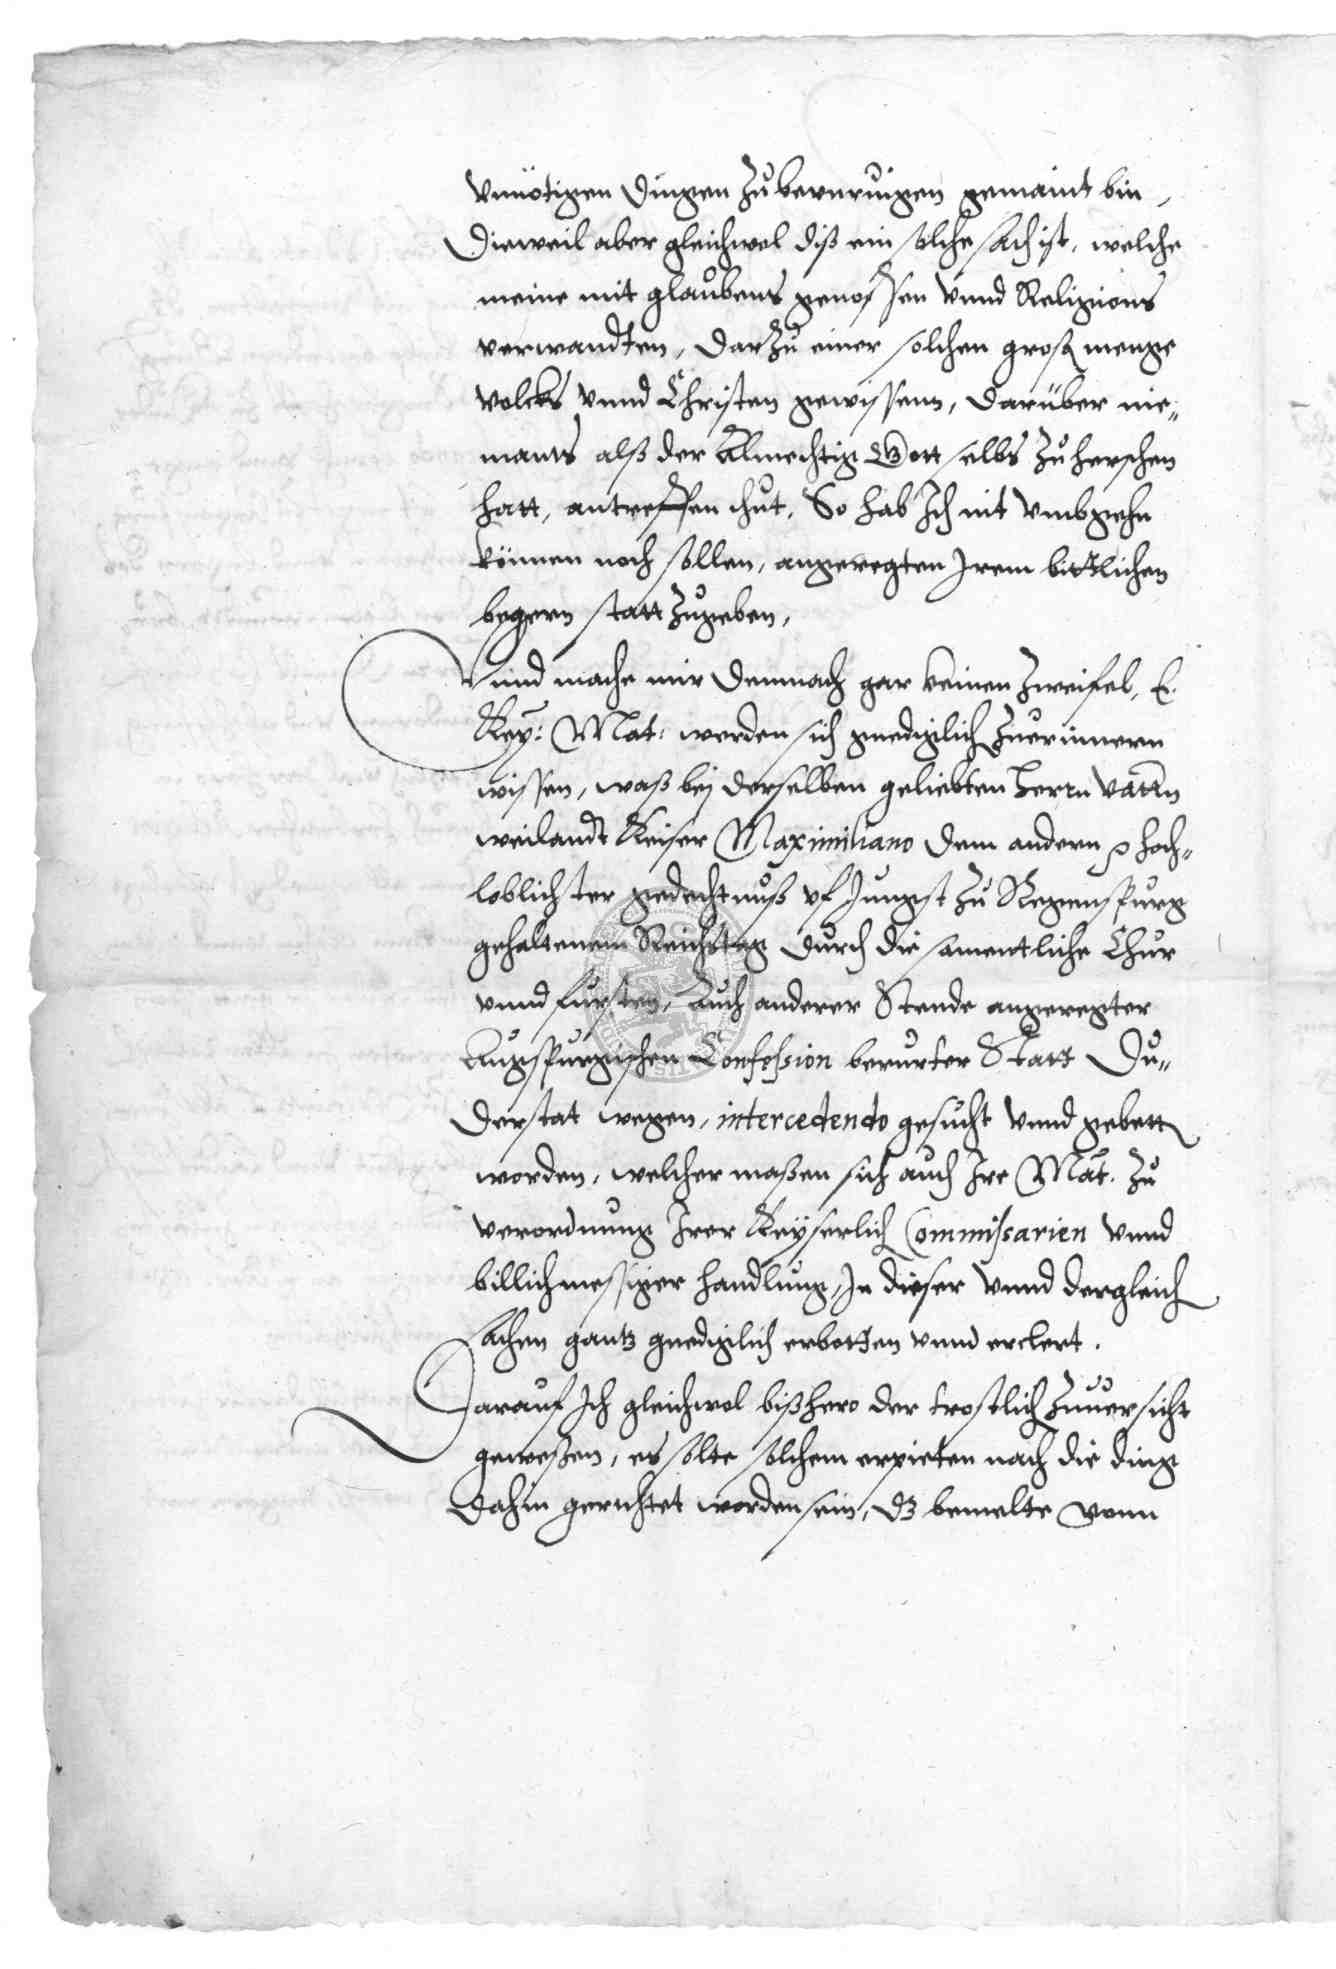 vnnötigen dingen zubevnruigen gemaint bin,
Dieweil aber gleichwol diß ein solche sach ist, welche
meine mit glaubens genossen vnnd Religions
verwandten, darzu einer solchen groß menge
volcks vnnd Christen gewissenn, darüber nie„
mants alß der Almechtig Gott selbs zu herschen
hatt, antreffen thut, So hab Ich nit vmbgehn
können noch sollen, angeregten Irem bittlichen
begern statt zugeben,
Vnnd mache mir demnach gar keinen zweifel, E.
Key: Mat: werden sich gnediglich zuerinnern
wissen, waß bej derselben geliebten herrn vattern
weilandt Keiser Maximiliano dem andern hoch„
loblichster gedechtnuß vf Jungst zu Regenspurg
gehaltenem Reichstag durch die sametliche Chur
vnnd fursten, Auch anderer Stende angeregter
Augspurgischen Confession berurter Statt Du„
derstat wegen, intercedendo gesucht vnnd gebetten
worden, welcher maßen sich auch Ire Mat. zu
verordnung Irer Keyserlich Commissarien vnnd
billichmessiger handlung, In dieser vnnd dergleich
sachen gantz gnediglich erbotten vnnd erclert.
Darauf Ich gleichwol bißhero der trostlich zuuersicht
geweßen, es solte solchem erpieten nach die ding
dahin gerichtet worden sein, dz bemelte vonn